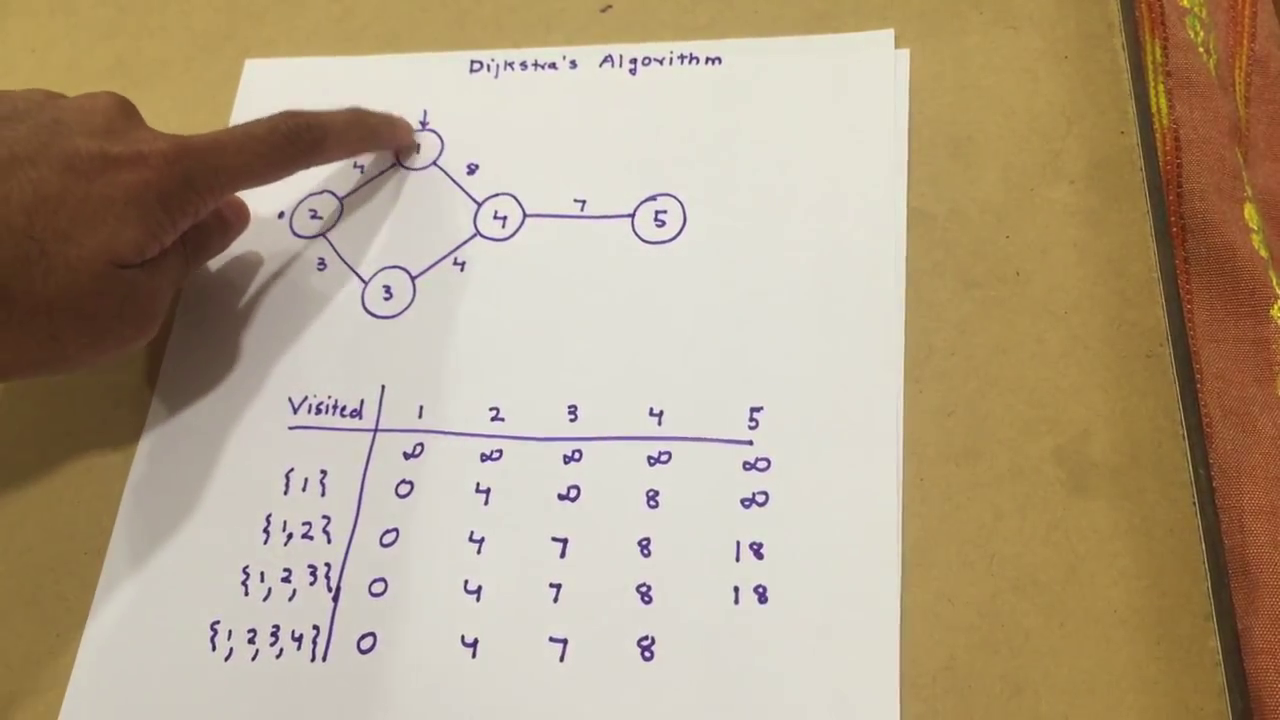 Dijkstra's Algorithm
1
4 8
2 4 7 5
3 4
3
Visited 1 2 3 4 5
∞ ∞ ∞ ∞ ∞
{1} 0 4 ∞ 8 ∞
{1,2} 0 4 7 8 18
{1,2,3} 0 4 7 8 18
{1,2,3,4} 0 4 7 8